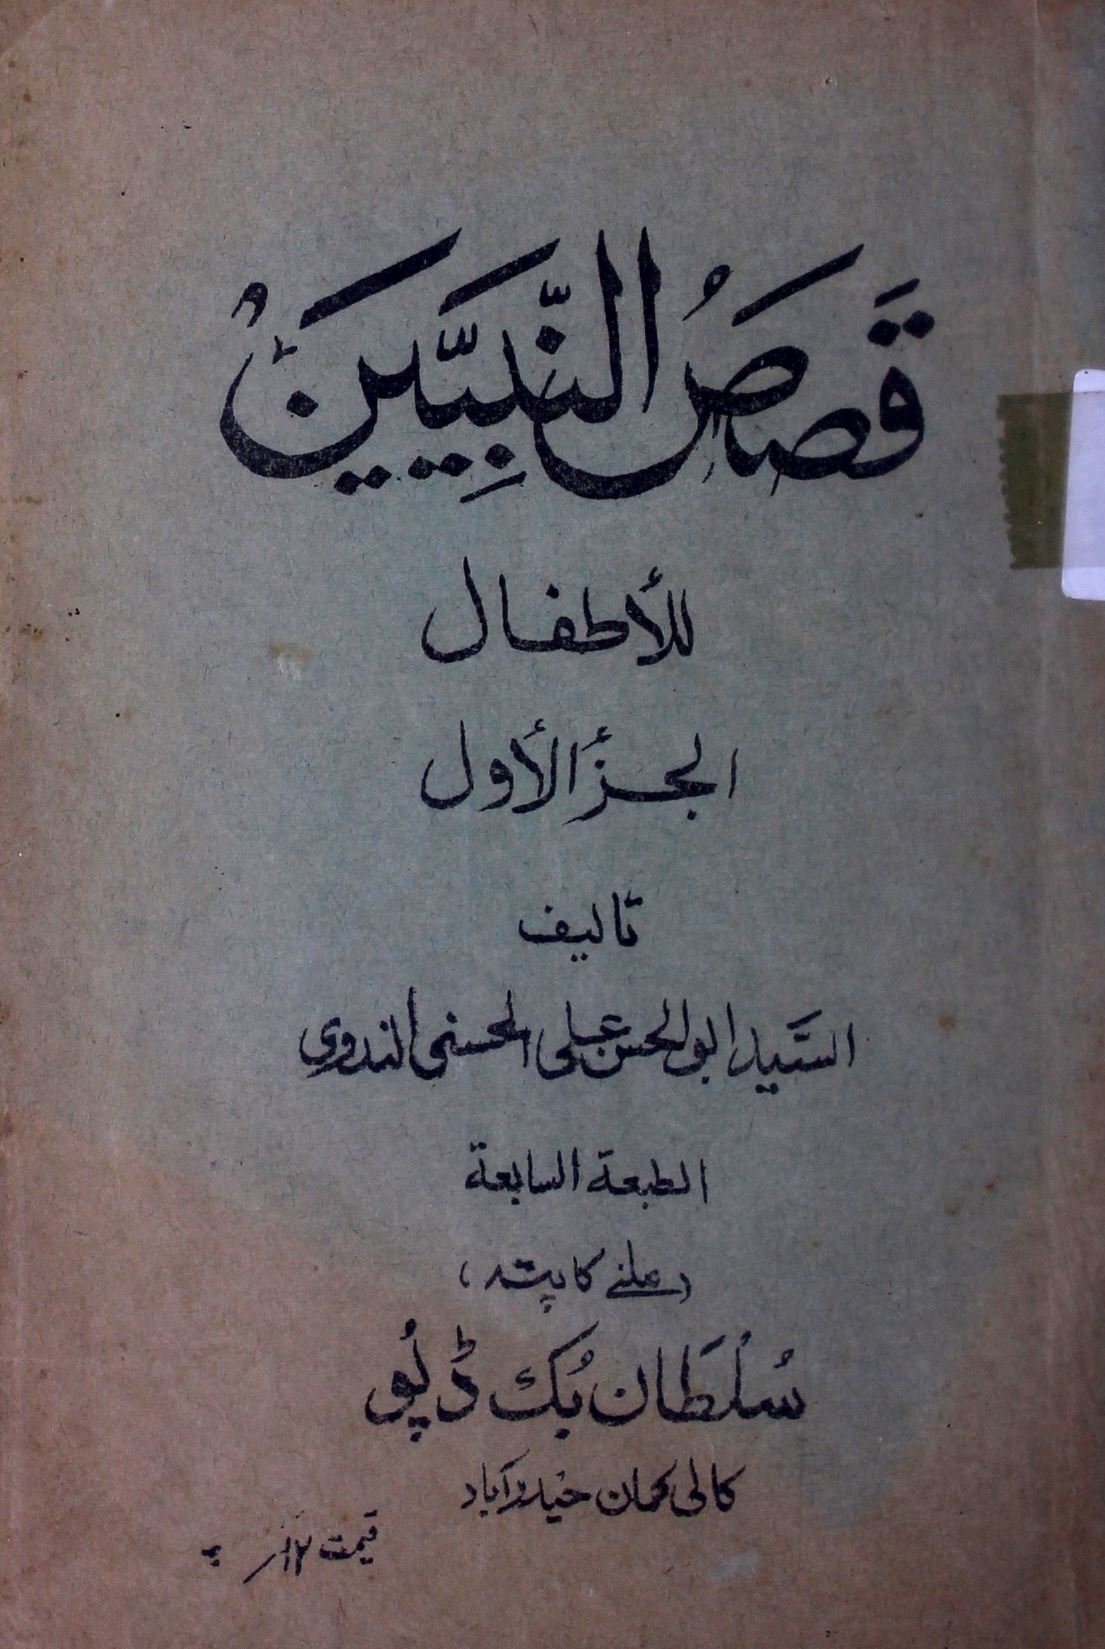 قَصَصُ النَّبِيَّيْنَ
للأطفال
الجزأ الأول
تاليف
السَّيد ابو الحسن على الحسنى الندوي
الطبعة السابعة
(ملنے کا پتہ)
سُلْطَان بُک ڈپُو
کالی کمان حیدرآباد
قیمت ۱۲؍